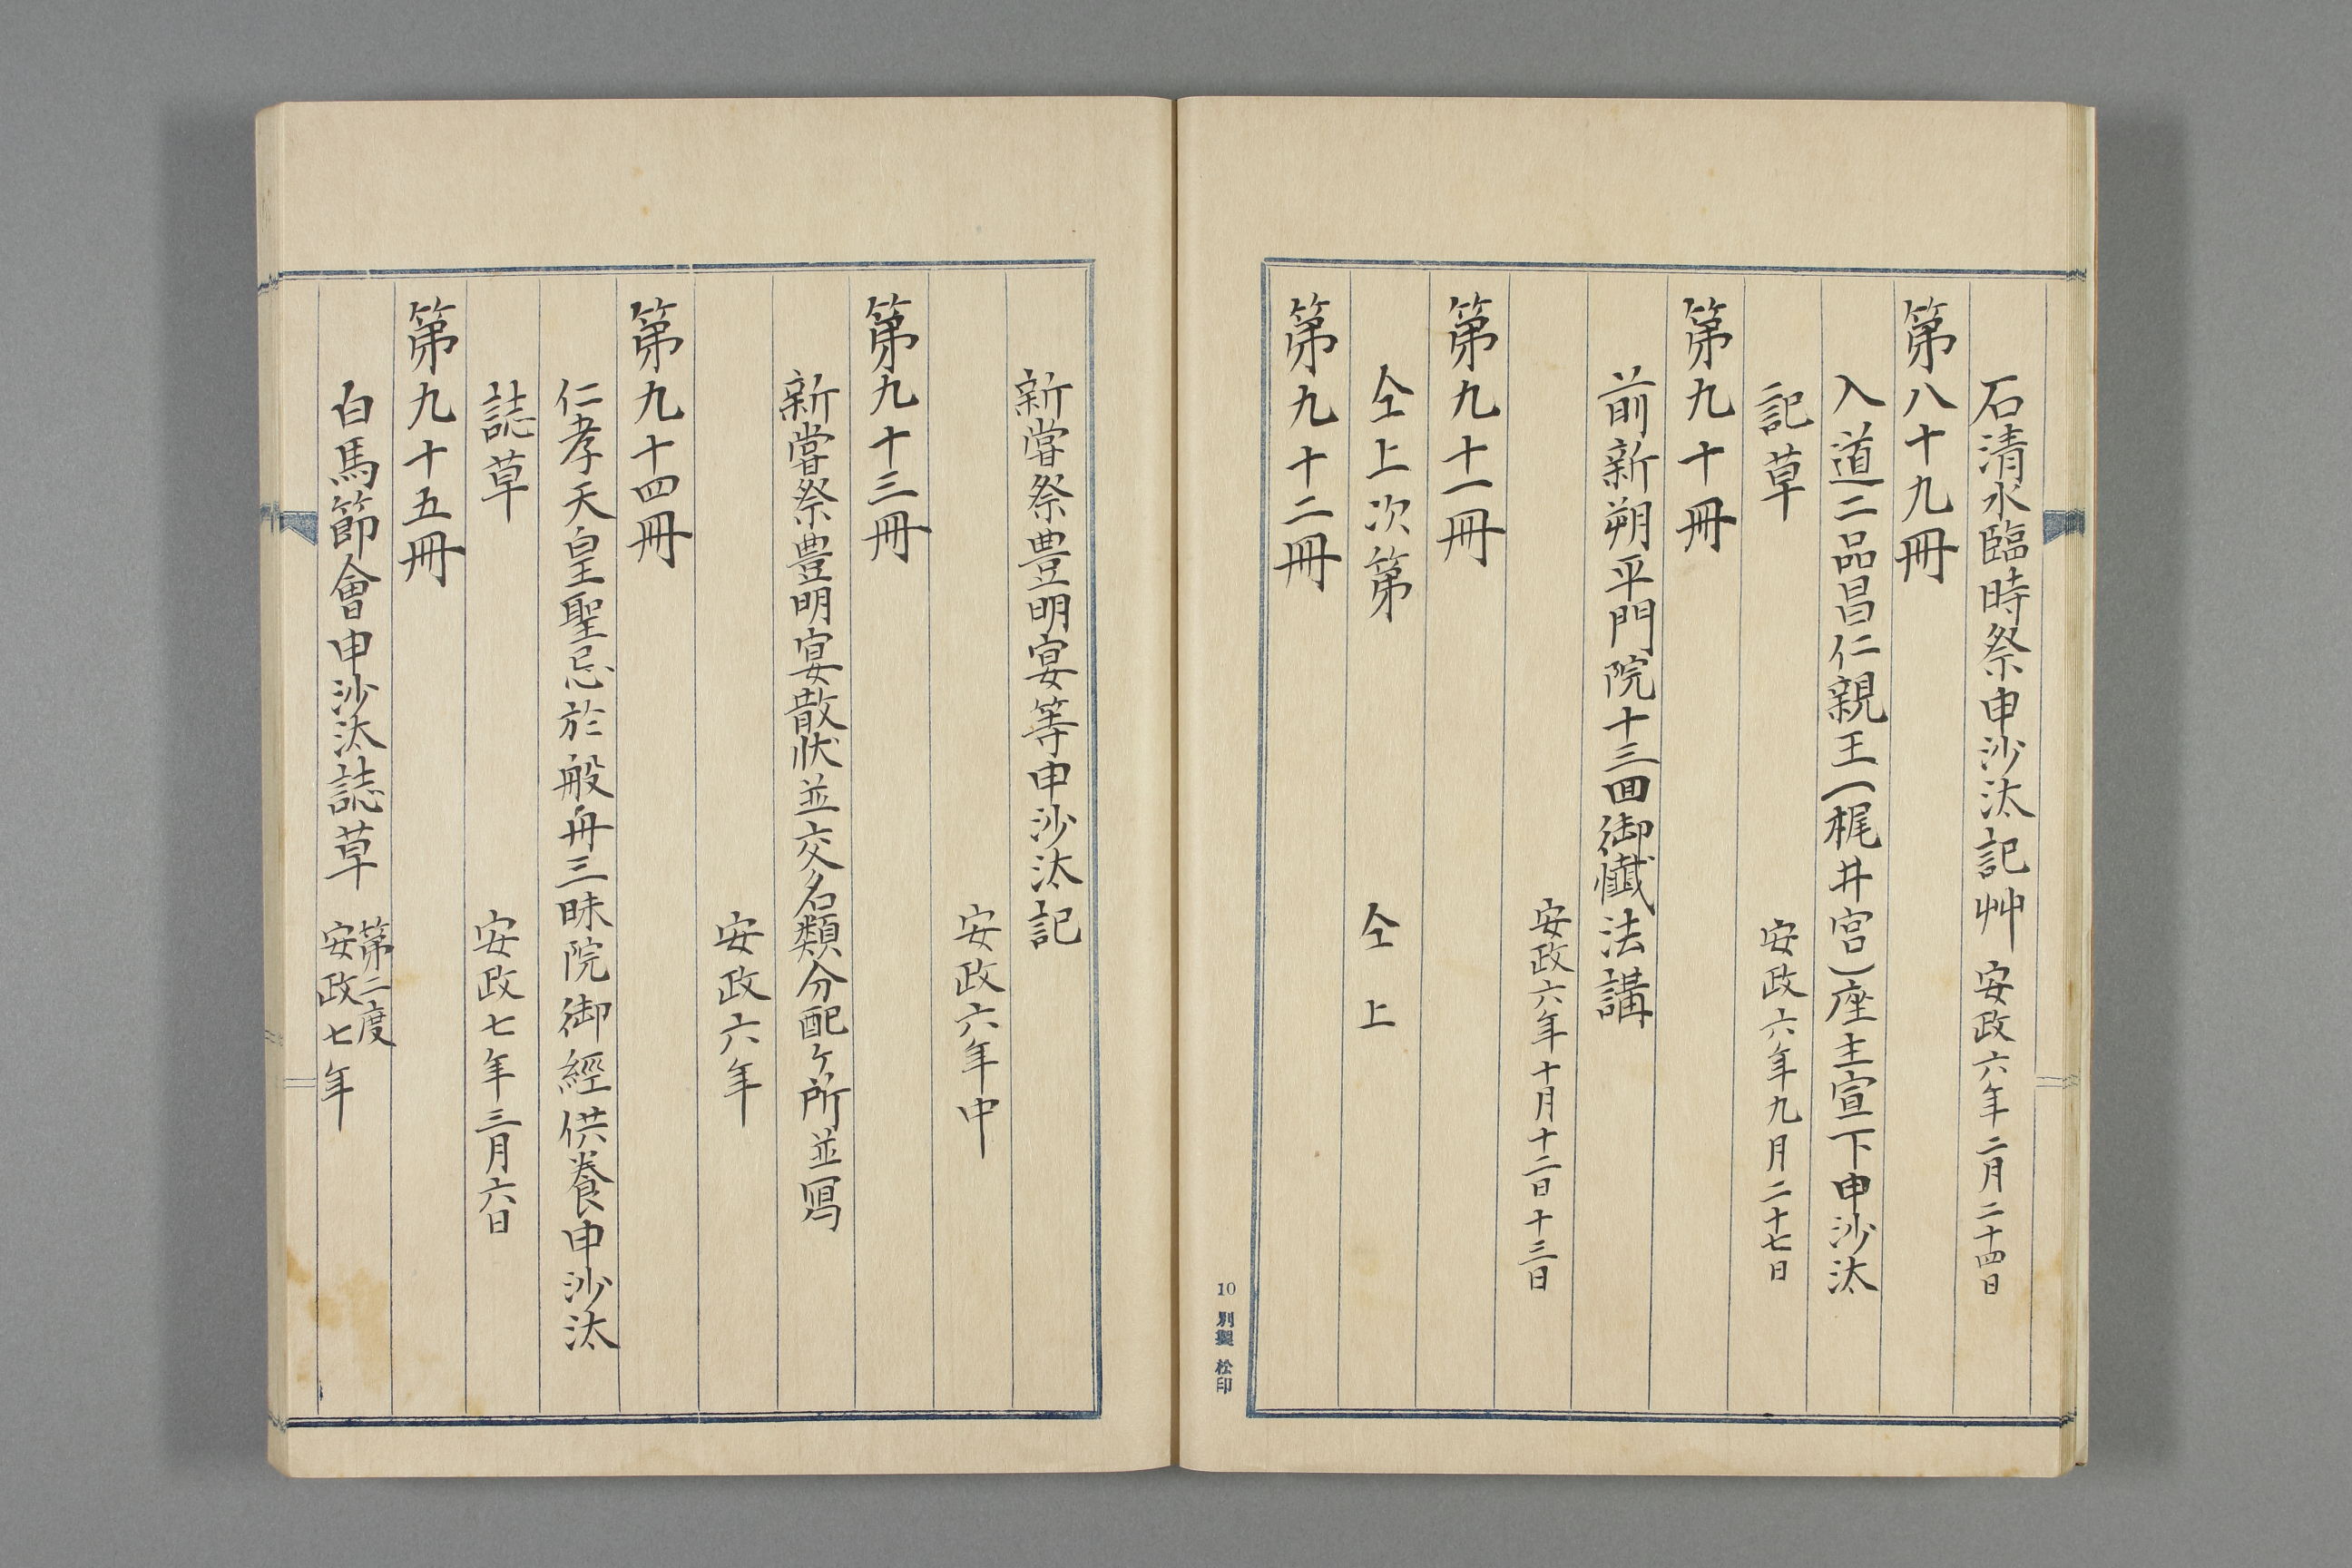 石清水臨時祭申沙汰記艸 安政六年二月二十四日
第八十九冊
入道二品昌仁親王(梶井宮)座主宣下申沙汰
記草 安政六年九月二十七日
第九十冊
前新朔平門院十三回御懺法講
安政六年十月十二日十三日
第九十一冊
仝上次第 仝上
第九十二冊
10 別製 松印
新嘗祭豊明宴等申沙汰記
安政六年中
第九十三冊
新嘗祭豊明宴散状並交名類分配ヶ所並冩
安政六年
第九十四冊
仁孝天皇聖忌於般舟三昧院御經供養申沙汰
誌草 安政七年三月六日
第九十五冊
白馬節會申沙汰誌草 第二度
安政七年